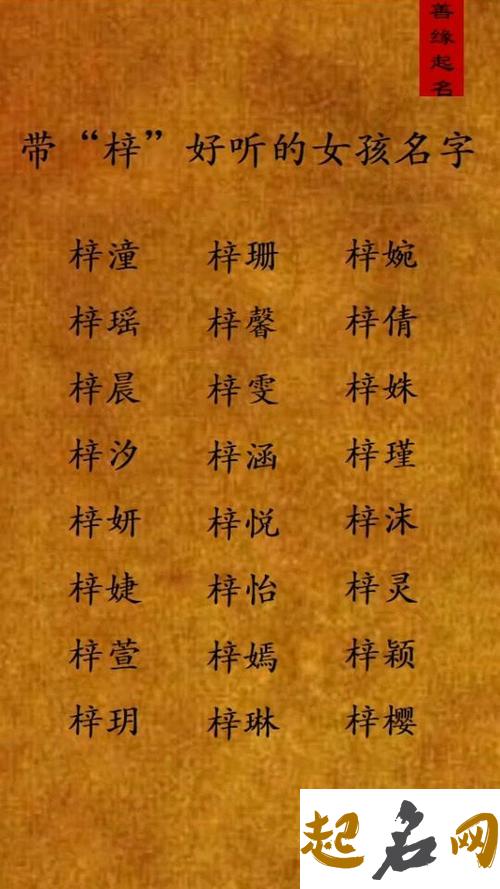 善缘起名
带“梓”好听的女孩名字
梓潼 梓珊 梓婉
梓瑶 梓馨 梓倩
梓晨 梓雯 梓姝
梓汐 梓涵 梓瑾
梓妍 梓悦 梓沫
梓婕 梓怡 梓灵
梓萱 梓嫣 梓颖
梓玥 梓琳 梓樱
起名网